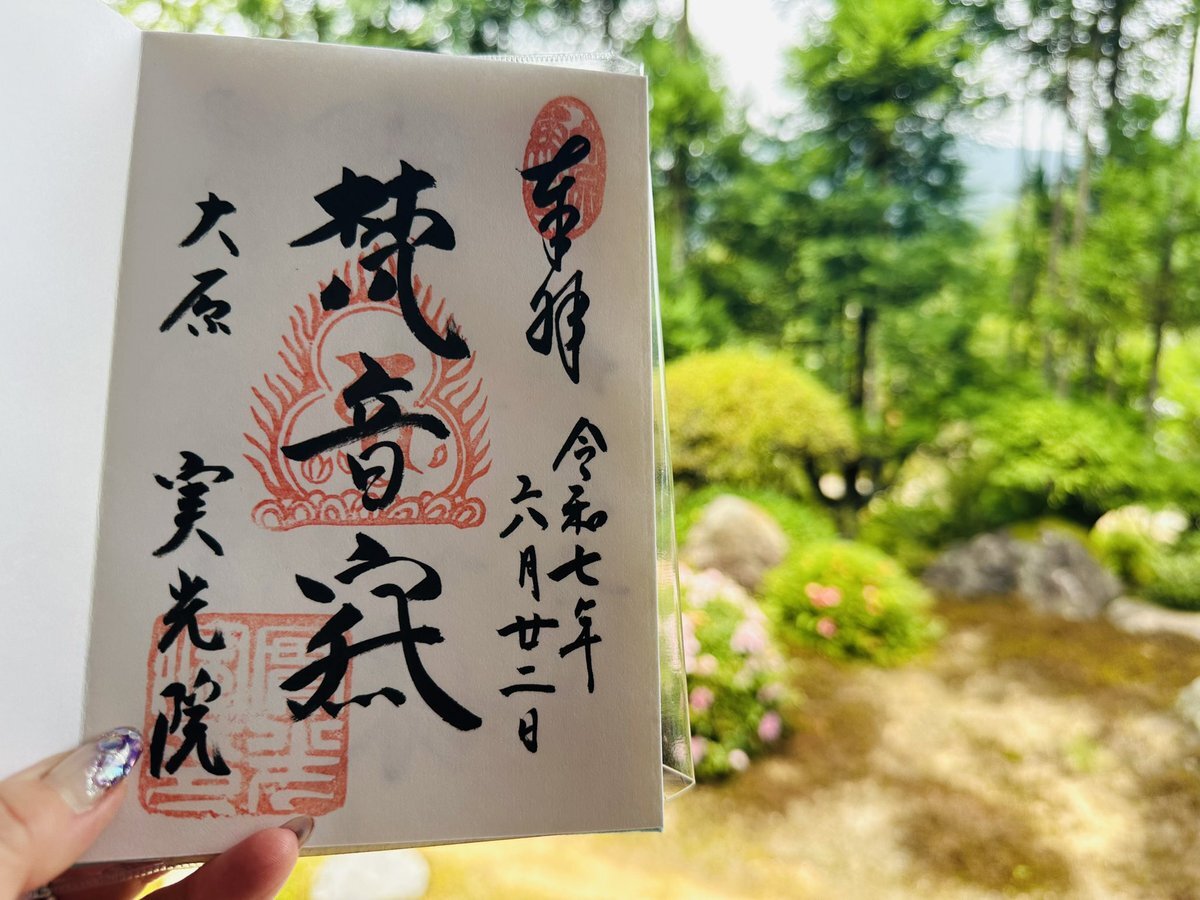 奉拝
令和七年
六月廿二日
梵音
大原
実光院